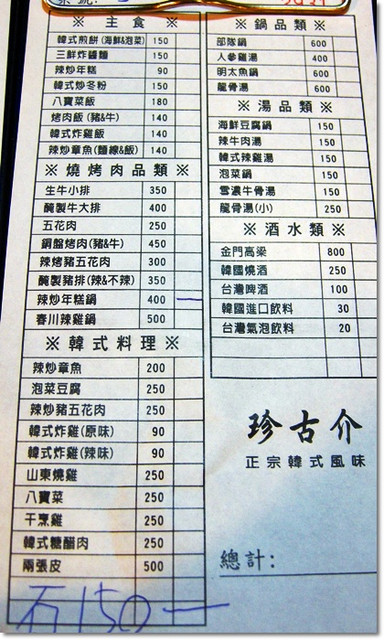 ※ 主食 ※
韓式煎餅(海鮮&泡菜) 150
三鮮炸醬麵 150
辣炒年糕 90
韓式炒冬粉 150
八寶菜飯 180
烤肉飯(豬&牛) 140
韓式炸雞飯 140
辣炒章魚(麵線&飯) 150
※ 燒烤肉品類 ※
生牛小排 350
醃製牛大排 400
五花肉 250
銅盤烤肉(豬&牛) 450
辣烤豬五花肉 300
醃製豬排(辣&不辣) 350
辣炒年糕鍋 400 一
春川辣雞鍋 500
※ 韓式料理 ※
辣炒章魚 200
泡菜豆腐 250
辣炒豬五花肉 250
韓式炸雞(原味) 90
韓式炸雞(辣味) 90
山東燒雞 250
八寶菜 250
干烹雞 250
韓式糖醋肉 250
兩張皮 500
石 150 一
※ 鍋品類 ※
部隊鍋 600
人參雞湯 400
明太魚鍋 600
龍骨湯 600
※ 湯品類 ※
海鮮豆腐鍋 150
辣牛肉湯 150
韓式辣雞湯 150
泡菜鍋 150
雪濃牛骨湯 150
龍骨湯(小) 250
※ 酒水類 ※
金門高梁 800
韓國燒酒 250
台灣啤酒 100
韓國進口飲料 30
台灣氣泡飲料 20
珍古介
正宗韓式風味
總計: